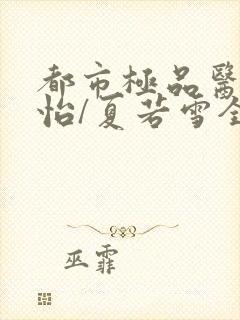 都市極品醫
怡/夏若雪全
巫霏